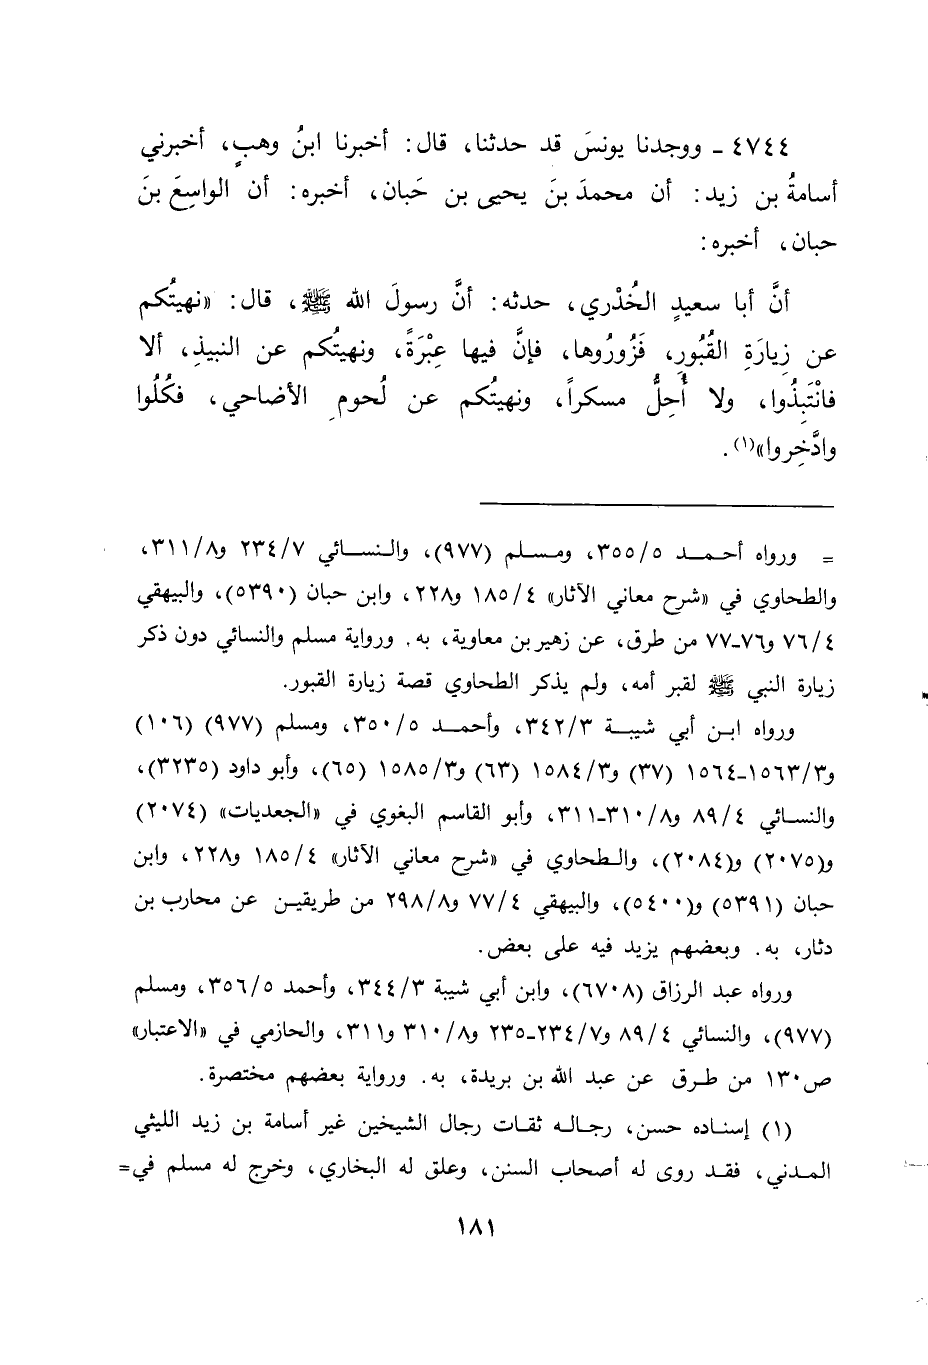 ٤٧٤٤ ـ ووجدنا يونسَ قد حدثنا، قال: أخبرنا ابنُ وهبٍ، أخبرني
أسامةُ بن زيد: أن محمدَ بنَ يحيى بن حَبان، أخبره: أن الواسِعَ بنَ
حبان، أخبره:
أنَّ أبا سعيدٍ الخُدْري، حدثه: أنَّ رسولَ الله ﷺ، قال: «نهيتُكم
عن زِيارَةِ القُبُورِ، فَزُورُوها، فإنَّ فيها عِبْرَةً، ونهيتُكم عن النبيذِ، ألا
فانْتَبِذُوا، ولا أُحِلُّ مسكراً، ونهيتُكم عن لُحومِ الأضاحي، فكُلُوا
وادَّخِروا»(١).
= ورواه أحمد ٣٥٥/٥، ومسلم (٩٧٧)، والنسائي ٢٣٤/٧ و٣١١/٨،
والطحاوي في «شرح معاني الآثار» ١٨٥/٤ و٢٢٨، وابن حبان (٥٣٩٠)، والبيهقي
٧٦/٤ و٧٦ـ٧٧ من طرق، عن زهير بن معاوية، به. ورواية مسلم والنسائي دون ذكر
زيارة النبي ﷺ لقبر أمه، ولم يذكر الطحاوي قصة زيارة القبور.
ورواه ابن أبي شيبة ٣٤٢/٣، وأحمد ٣٥٠/٥، ومسلم (٩٧٧) (١٠٦)
و١٥٦٣/٣ـ١٥٦٤ (٣٧) و١٥٨٤/٣ (٦٣) و١٥٨٥/٣ (٦٥)، وأبو داود (٣٢٣٥)،
والنسائي ٨٩/٤ و٣١٠/٨ـ٣١١، وأبو القاسم البغوي في «الجعديات» (٢٠٧٤)
و(٢٠٧٥) و(٢٠٨٤)، والطحاوي في «شرح معاني الآثار» ١٨٥/٤ و٢٢٨، وابن
حبان (٥٣٩١) و(٥٤٠٠)، والبيهقي ٧٧/٤ و٢٩٨/٨ من طريقين عن محارب بن
دثار، به. وبعضهم يزيد فيه على بعض.
ورواه عبد الرزاق (٦٧٠٨)، وابن أبي شيبة ٣٤٤/٣، وأحمد ٣٥٦/٥، ومسلم
(٩٧٧)، والنسائي ٨٩/٤ و٢٣٤/٧ـ٢٣٥ و٣١٠/٨ و٣١١، والحازمي في «الاعتبار»
ص١٣٠ من طرق عن عبد الله بن بريدة، به. ورواية بعضهم مختصرة.
(١) إسناده حسن، رجاله ثقات رجال الشيخين غير أسامة بن زيد الليثي
المدني، فقد روى له أصحاب السنن، وعلق له البخاري، وخرج له مسلم في=
١٨١